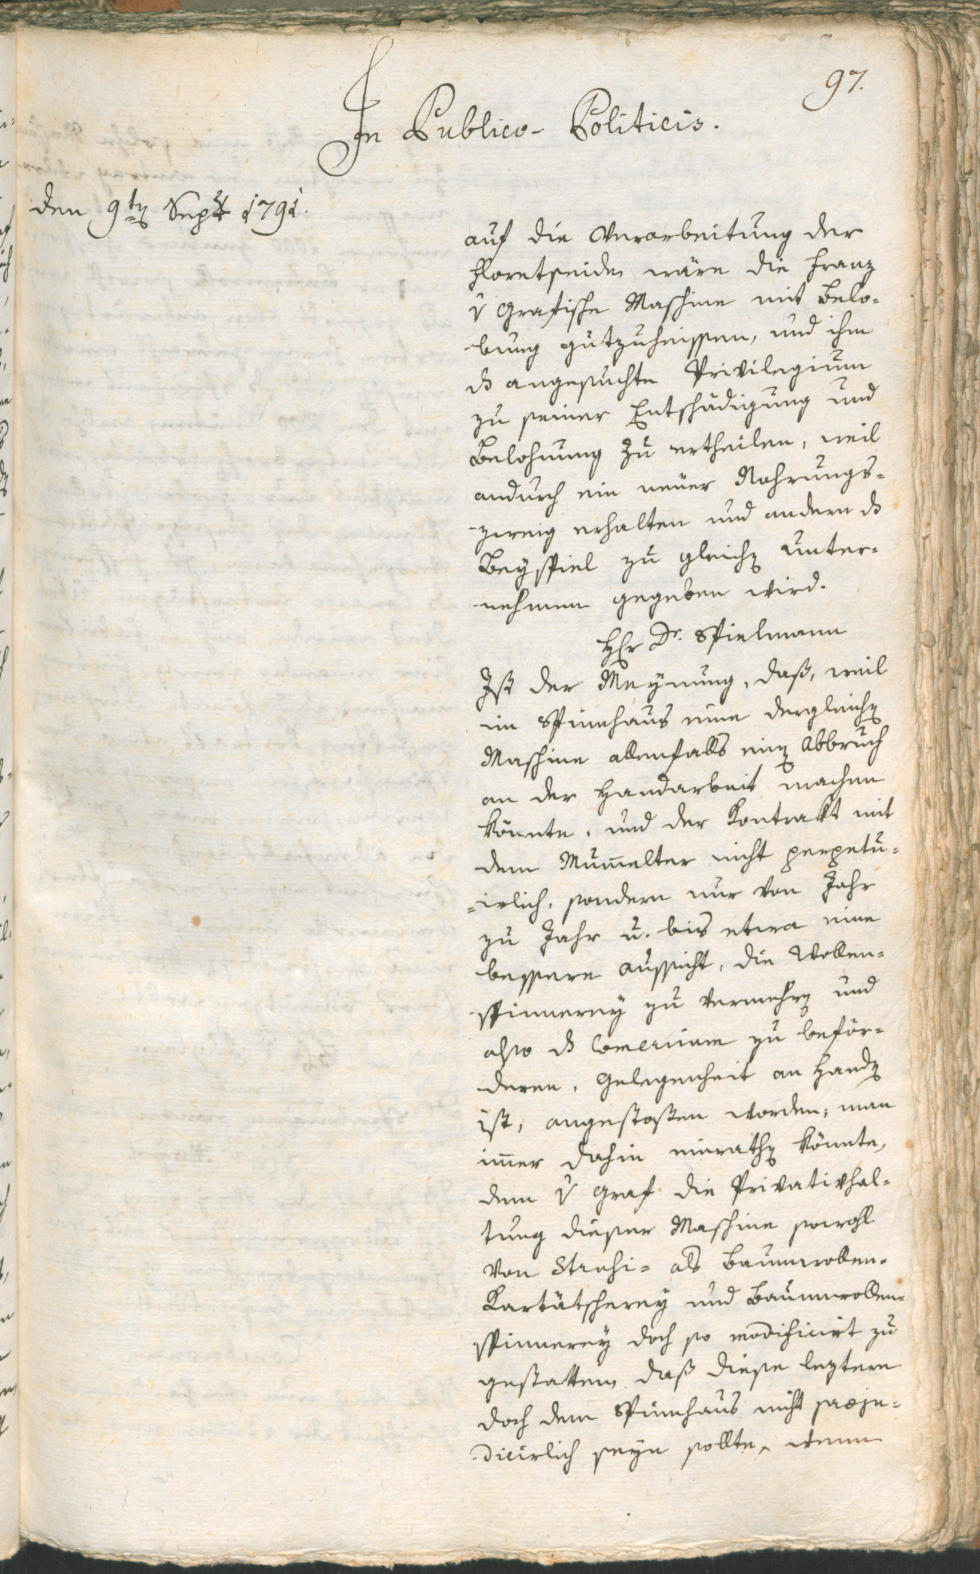 97.
In Publico-Politicis.
den 9ten Sept 1791.
auf die Verarbeitung der
Floretseiden wäre die Franz
v Grafische Maschine mit Belo-
bung gutzuheissen, und ihm
ds angesuchte Privilegium
zu seiner Entschädigung und
Belohnung zu ertheilen, weil
andurch ein neuer Nahrungs-
zweig erhalten und andern ds
Beyspiel zu gleichen Unter-
nehmen gegeben wird.
HEr Dr. Spielmann
Ist der Meynung, daß, weil
im Spinnhaus eine dergleichen
Maschine allenfalls einen Abbruch
an der Handarbeit machen
könnte, und der Kontrakt mit
dem Mumelter nicht perpetu-
irlich, sondern nur von Jahr
zu Jahr u. bis etwa eine
bessere Aussicht, die Wollen-
spinnerey zu vermehren und
also ds Comercium zu beför-
deren, Gelegenheit an Handen
ist, angestossen worden, man
imer dahin einrathen könnte,
dem v Graf die Privativhal-
tung dieser Maschine sowohl
von Strusi- als Baumwollen-
Kartätscherey und Baumwollen-
spinnerey doch so modificirt zu
gestatten, daß diese leztere
doch dem Spinnhaus nicht praeju-
dicirlich seyn sollte, wenn